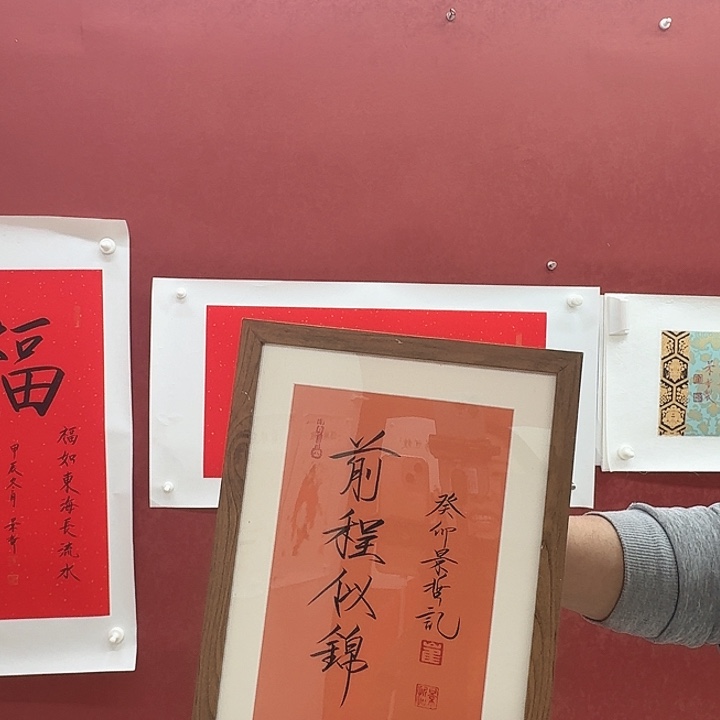 福
福如東海長流水
甲辰冬月
前程似錦
癸卯景哲記